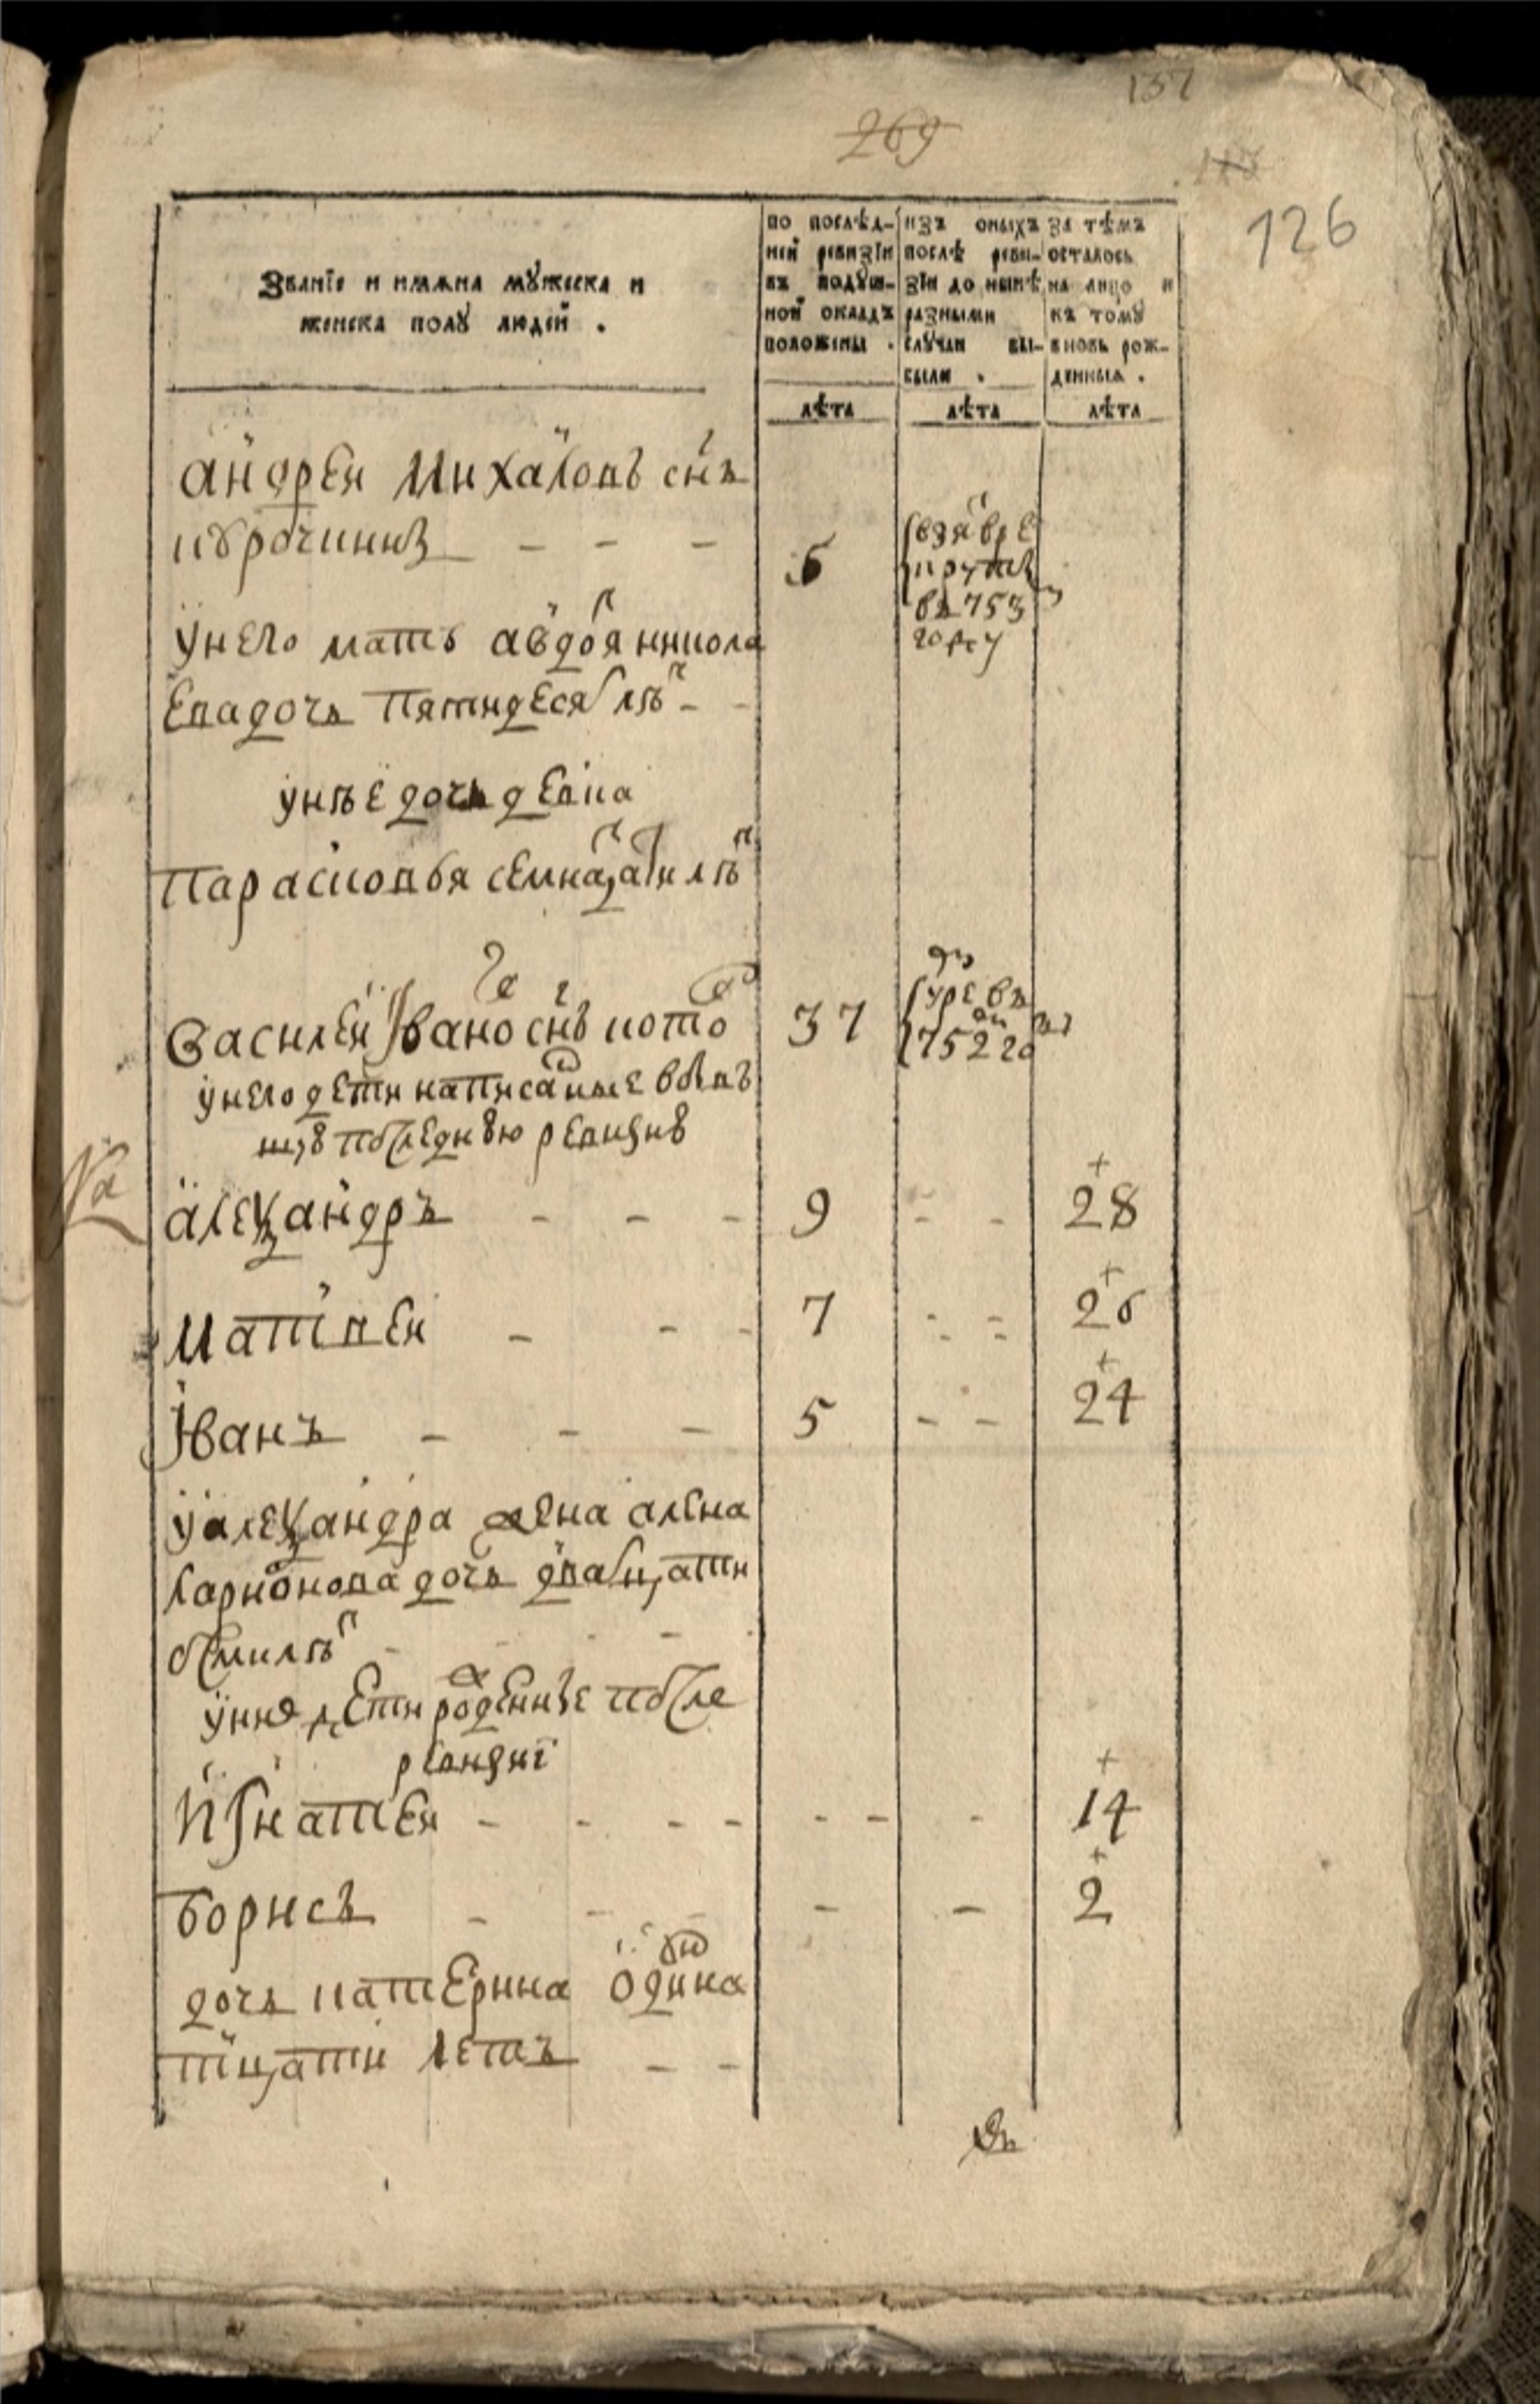 137
269
126
Званїе и имяна мужеска и
женска полу людей .
по послѣд-
ней ревизїи
въ подуш-
ной окладъ
положены .
изъ оныхъ
послѣ реви-
зїи до нынѣ
разными
случаи вы-
были .
за тѣмъ
осталось
на лицо и
къ тому
вновь рож-
денныя .
лѣта лѣта лѣта
андреи михаловъ снъ
6
взят вре
круты
въ 753
году
унего мать авдотя никола
ева дочь пятидесят лѣт - -
унѣе дочь девка
парасковья семнацати лѣт
василеи Іванов снъ 37
умре въ
1752 год
унего дети написаные в
последнюю ревизию
алеѯандръ - - - 9 - - 28
матвеи - - - 7 - - 26
Іванъ - - - 5 - - 24
уалеѯандра жена алена
ларионова дочь двацати
осми лѣт - - - -
унию дети рожденные после
ревизиї
игнатеи - - - - - - - 14
борисъ - - - - - 2
дочь катерина одина
тцати летъ - -